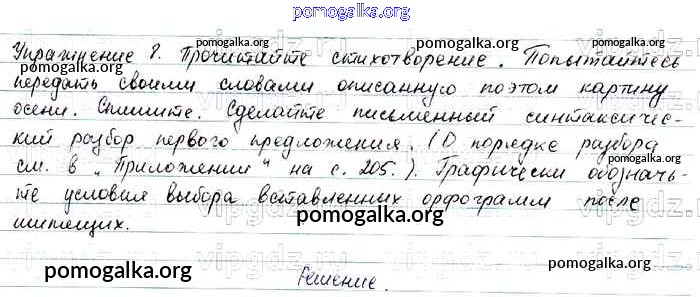 pomogalka.org
Упражнение 8. Прочитайте стихотворение. Попытайтесь
pomogalka.org pomogalka.org
передать своими словами описанную поэтом картину
осени. Спишите. Сделайте письменный синтаксичес-
кий разбор первого предложения. (О порядке разбора
pomogalka.org pomogalka.org
см. в „Приложении" на с. 205.). Графически обозначь-
те условия выбора вставленных орфограмм после
шипящих.
pomogalka.org
pomogalka.org pomogalka.org
Решение.